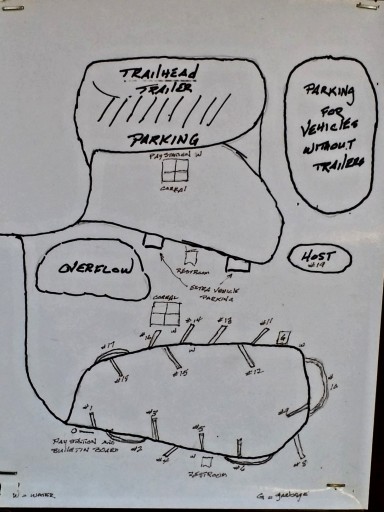 TRAILHEAD
TRAILER
PARKING
PAY STATION W
CORRAL
PARKING
FOR
VEHICLES
WITHOUT
TRAILERS
HOST
#19
RESTROOM
EXTRA VEHICLE
PARKING
OVERFLOW
CORRAL
W
#17
#16
#14
#13
#11
G
W
W
#18
#15
#12
#10
#9
#1
#3
#5
PAY STATION AND
BULLETIN BOARD
#2
#4
RESTROOM
#6
#8
W = WATER
G = garbage